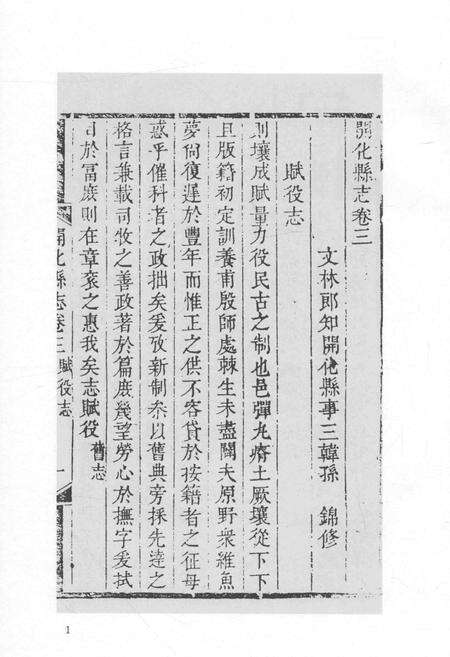 開化縣志卷三
文林郎知開化縣事三韓孫　錦修
賦役志
則壤成賦量力役民古之制也邑彈丸瘠土厥壤從下下
且版籍初定訓養甫殷師處棘生未盡闢夫原野衆維魚
夢尙復遲於豐年而惟正之供不容貸於按籍者之征毋
惑乎催科者之政拙矣爰攷新制叅以舊典旁採先達之
格言兼載司牧之善政著於篇庶幾望勞心於撫字爰拭
目於冨庶則在章衮之惠我矣志賦役 舊志
開化縣志卷三 賦役志 一
1